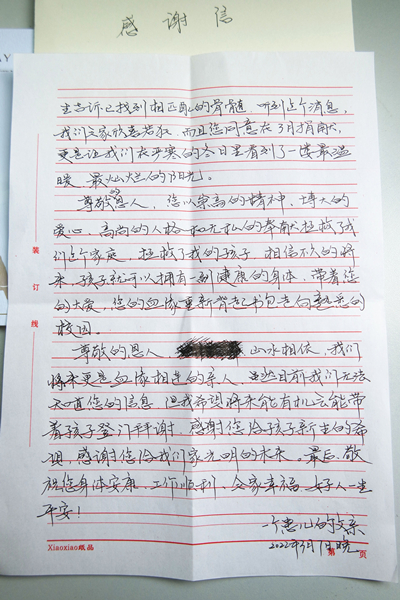 感谢信
生告诉已找到相匹配的骨髓,听到这个消息,
我们全家欣喜若狂,而且您同意在3月捐献,
更是让我们在严寒的冬日里看到了一缕最温
暖、最灿烂的阳光。
尊敬的恩人,您以崇高的精神,博大的
爱心,高尚的人格和无私的奉献拯救了我
们这个家庭,拯救了我的孩子,相信不久的将
来,孩子就可以拥有一副健康的身体,带着您
的大爱,您的血缘重新背起书包走向熟悉的
校园。
尊敬的恩人,山水相依,我们
将来更是血缘相连的亲人,虽然目前我们无法
知道您的信息,但我希望将来能有机会能带
着孩子登门拜谢,感谢您给孩子新生的希
望,感谢您给我们家光明的未来。最后,敬
祝您身体安康,工作顺利,全家幸福,好人一生
平安!
一个患儿的父亲
2022年3月1日晚
装
订
线
Xiaoxiao纸品
第 页